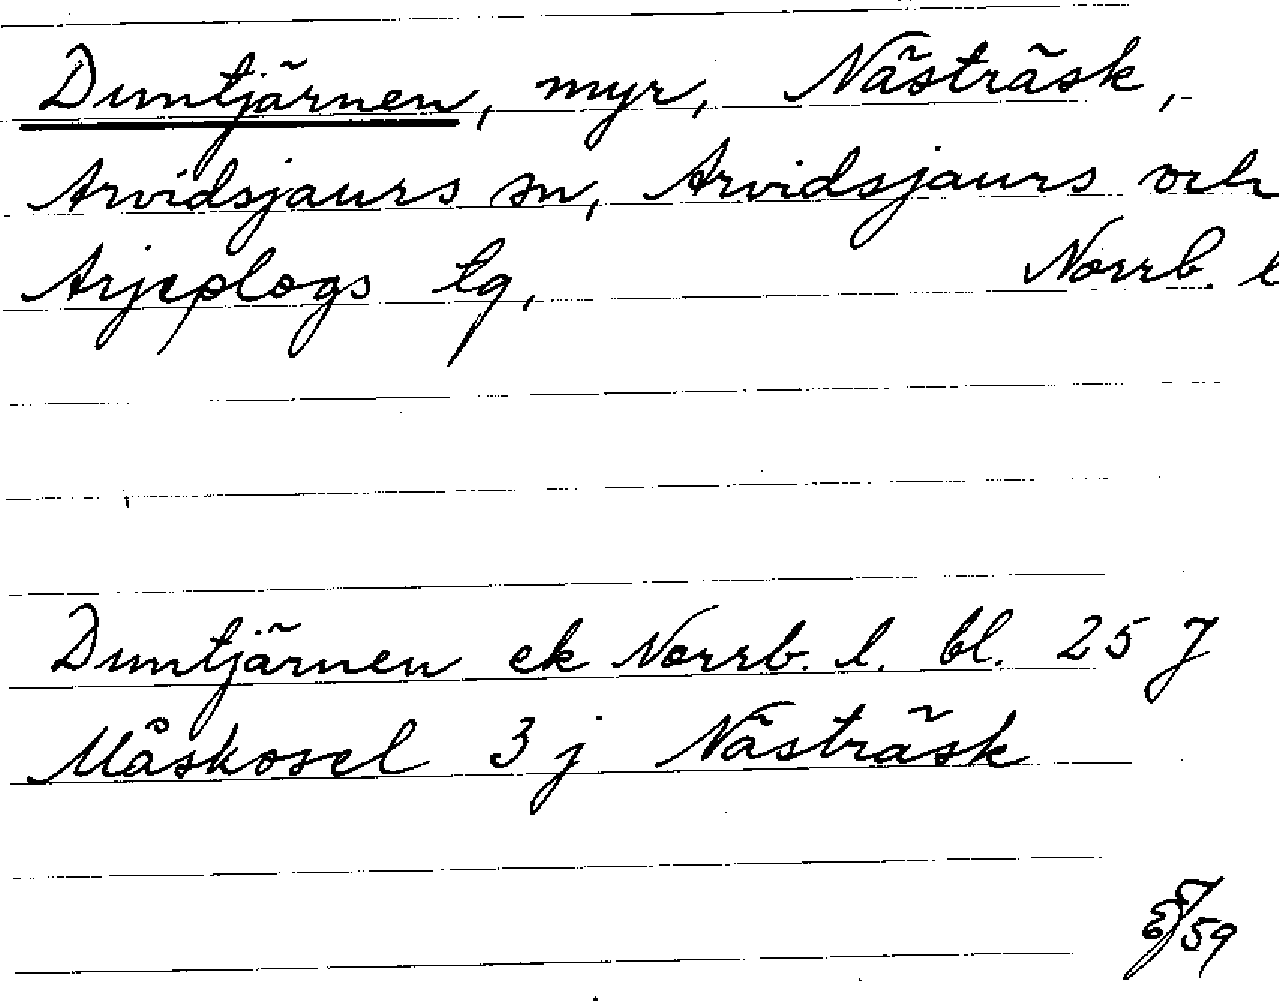 Duntjärnen, myr, Nästräsk,
Arvidsjaurs sn, Arvidsjaurs och
Arjeplogs tg, Norrb. l
Duntjärnen ek Norrb. l. bl. 25 J
Måskosel 3 j Nästräsk
59